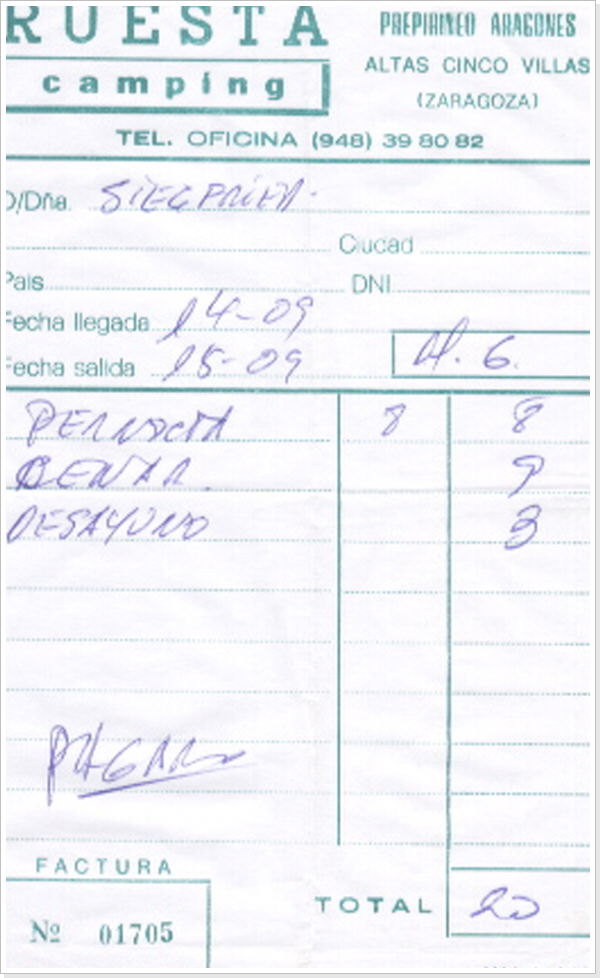 RUESTA
camping
PREPIRINEO ARAGONES
ALTAS CINCO VILLAS
(ZARAGOZA)
TEL. OFICINA (948) 39 80 82
D/Dña. SIEGFRIED.
Ciudad
Pais DNI
Fecha llegada 14-09
Fecha salida 15-09
6.
PERNOCTA 8 8
CENAR. 9
DESAYUNO 3
PAGAR
FACTURA
TOTAL 20
Nº 01705